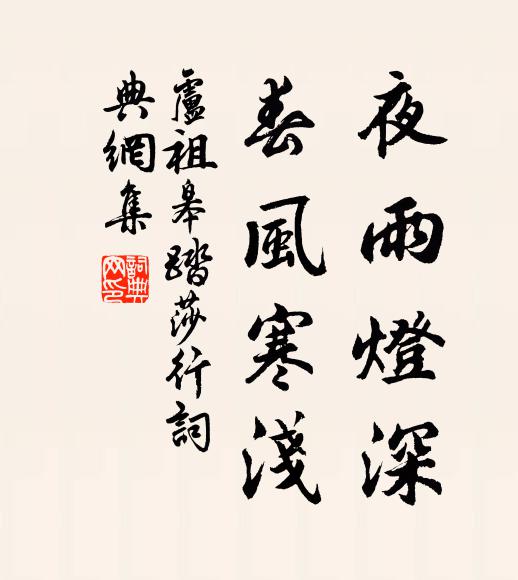 夜雨燈深
春風寒淺
盧祖皋踏莎行詞
典網集
詞典網印